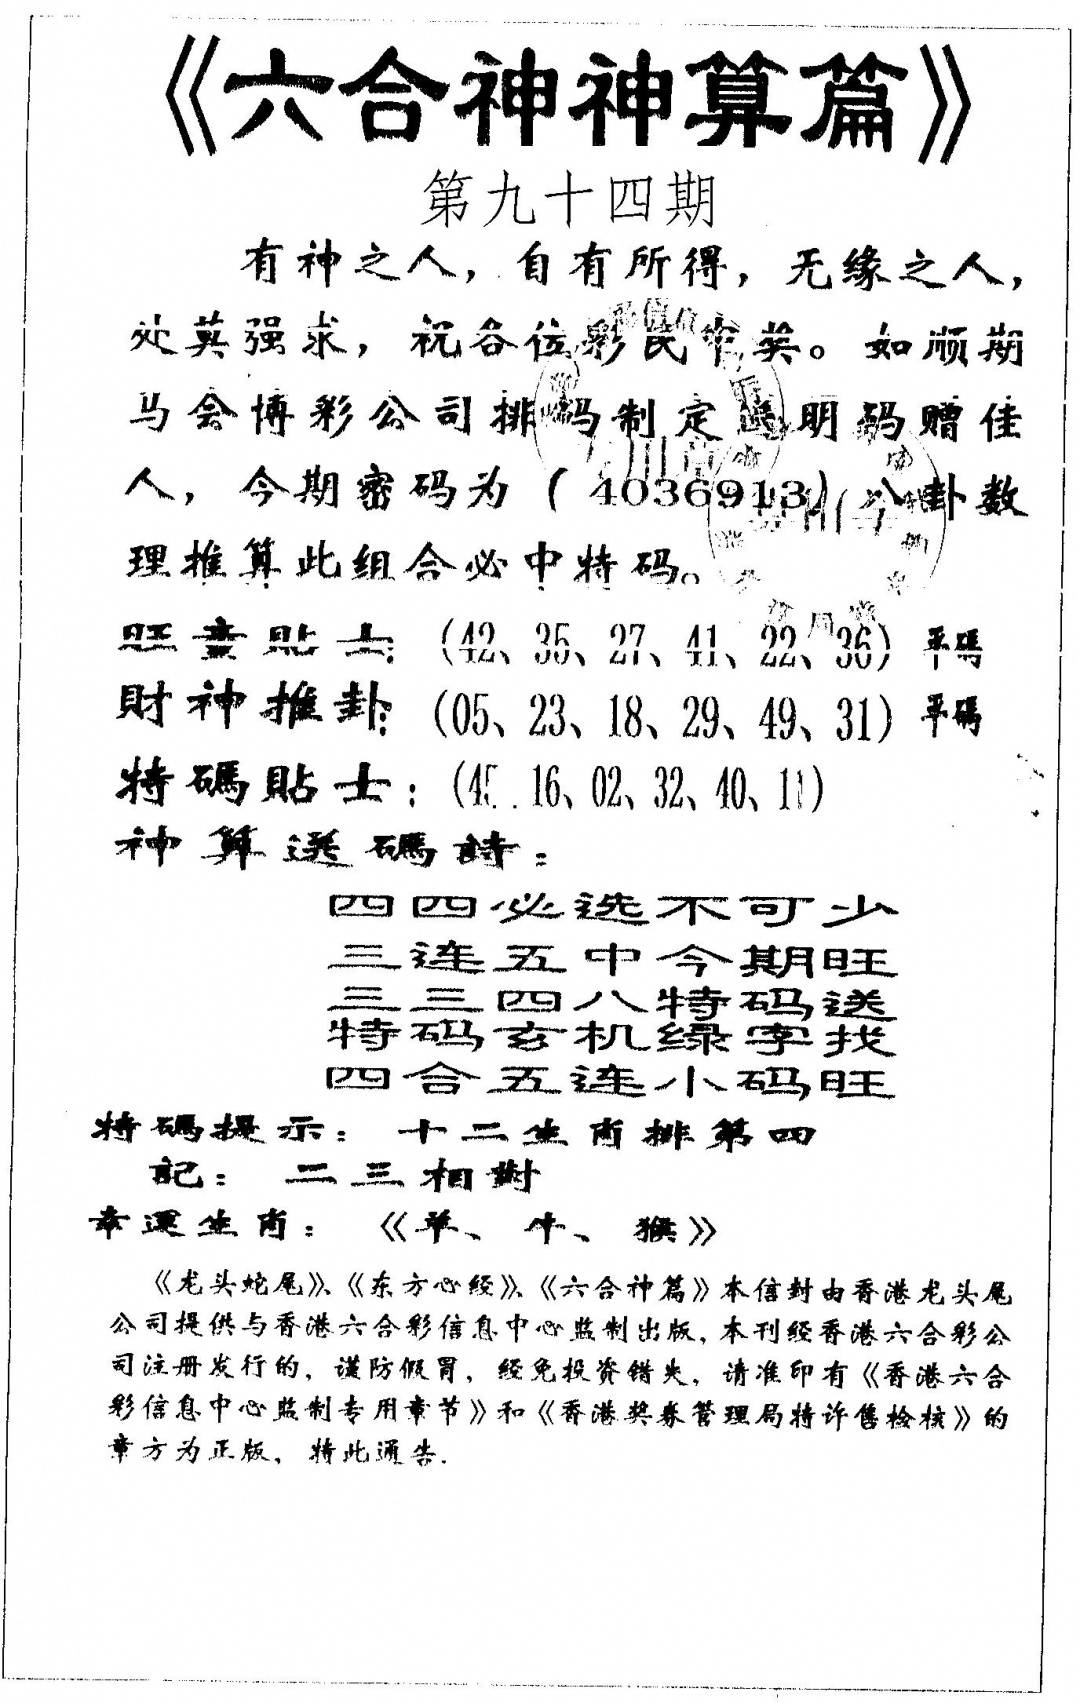 《六合神神算篇》
第九十四期
有神之人，自有所得，无缘之人，
处莫强求，祝各位彩民中奖。如顺期
马会博彩公司排码制定透明码赠佳
人，今期密码为(4036913)八卦数
理推算此组合必中特码。
旺童貼士:(42、35、27、41、22、36)平碼
財神推卦:(05、23、18、29、49、31)平碼
特碼貼士:(45、16、02、32、40、11)
神算选碼詩:
四四必选不可少
三连五中今期旺
三三四八特码送
特码玄机绿字找
四合五连小码旺
特碼提示:十二生肖排第四
記:二三相對
幸運生肖:《羊、牛、猴》
《龙头蛇尾》、《东方心经》、《六合神篇》本信封由香港龙头尾
公司提供与香港六合彩信息中心监制出版,本刊经香港六合彩公
司注册发行的,谨防假冒,经免投资错失,请准印有《香港六合
彩信息中心监制专用章节》和《香港奖券管理局特许售检核》的
章方为正版,特此通告.